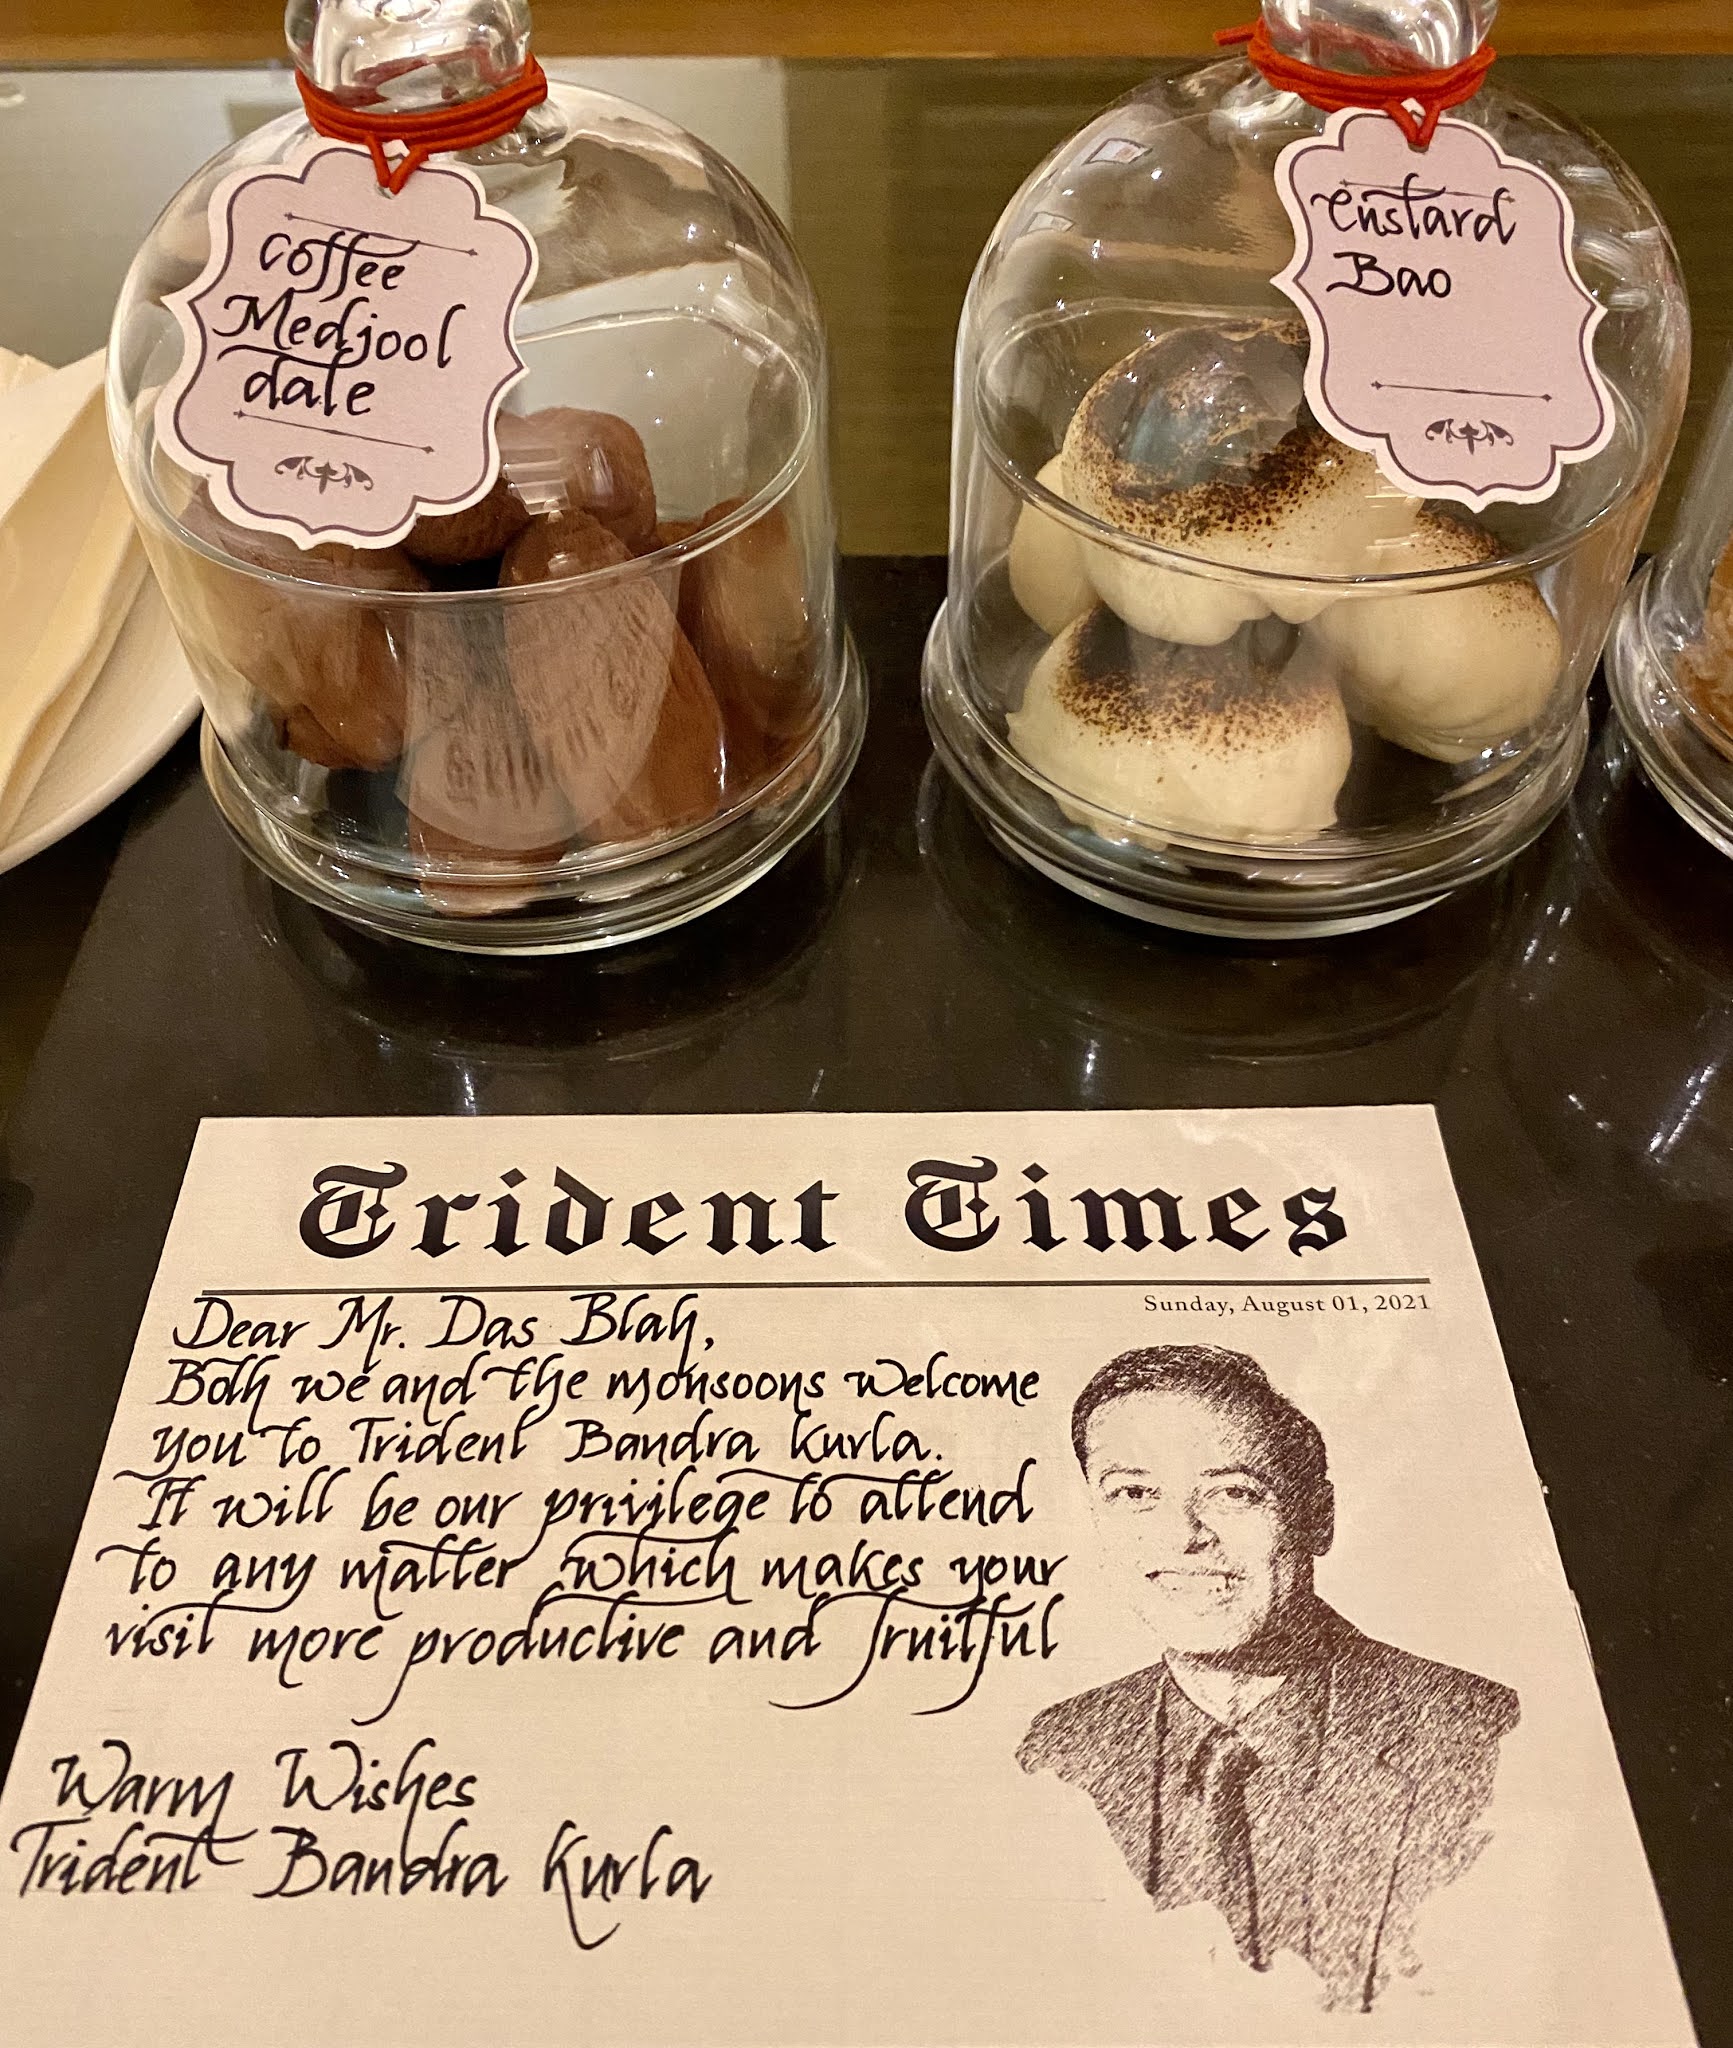 Coffee
Medjool
date
Custard
Bao
Trident Times
Sunday, August 01, 2021
Dear Mr. Das Blah,
Both we and the monsoons welcome
you to Trident Bandra Kurla.
It will be our privilege to attend
to any matter which makes your
visit more productive and fruitful
Warm Wishes
Trident Bandra Kurla